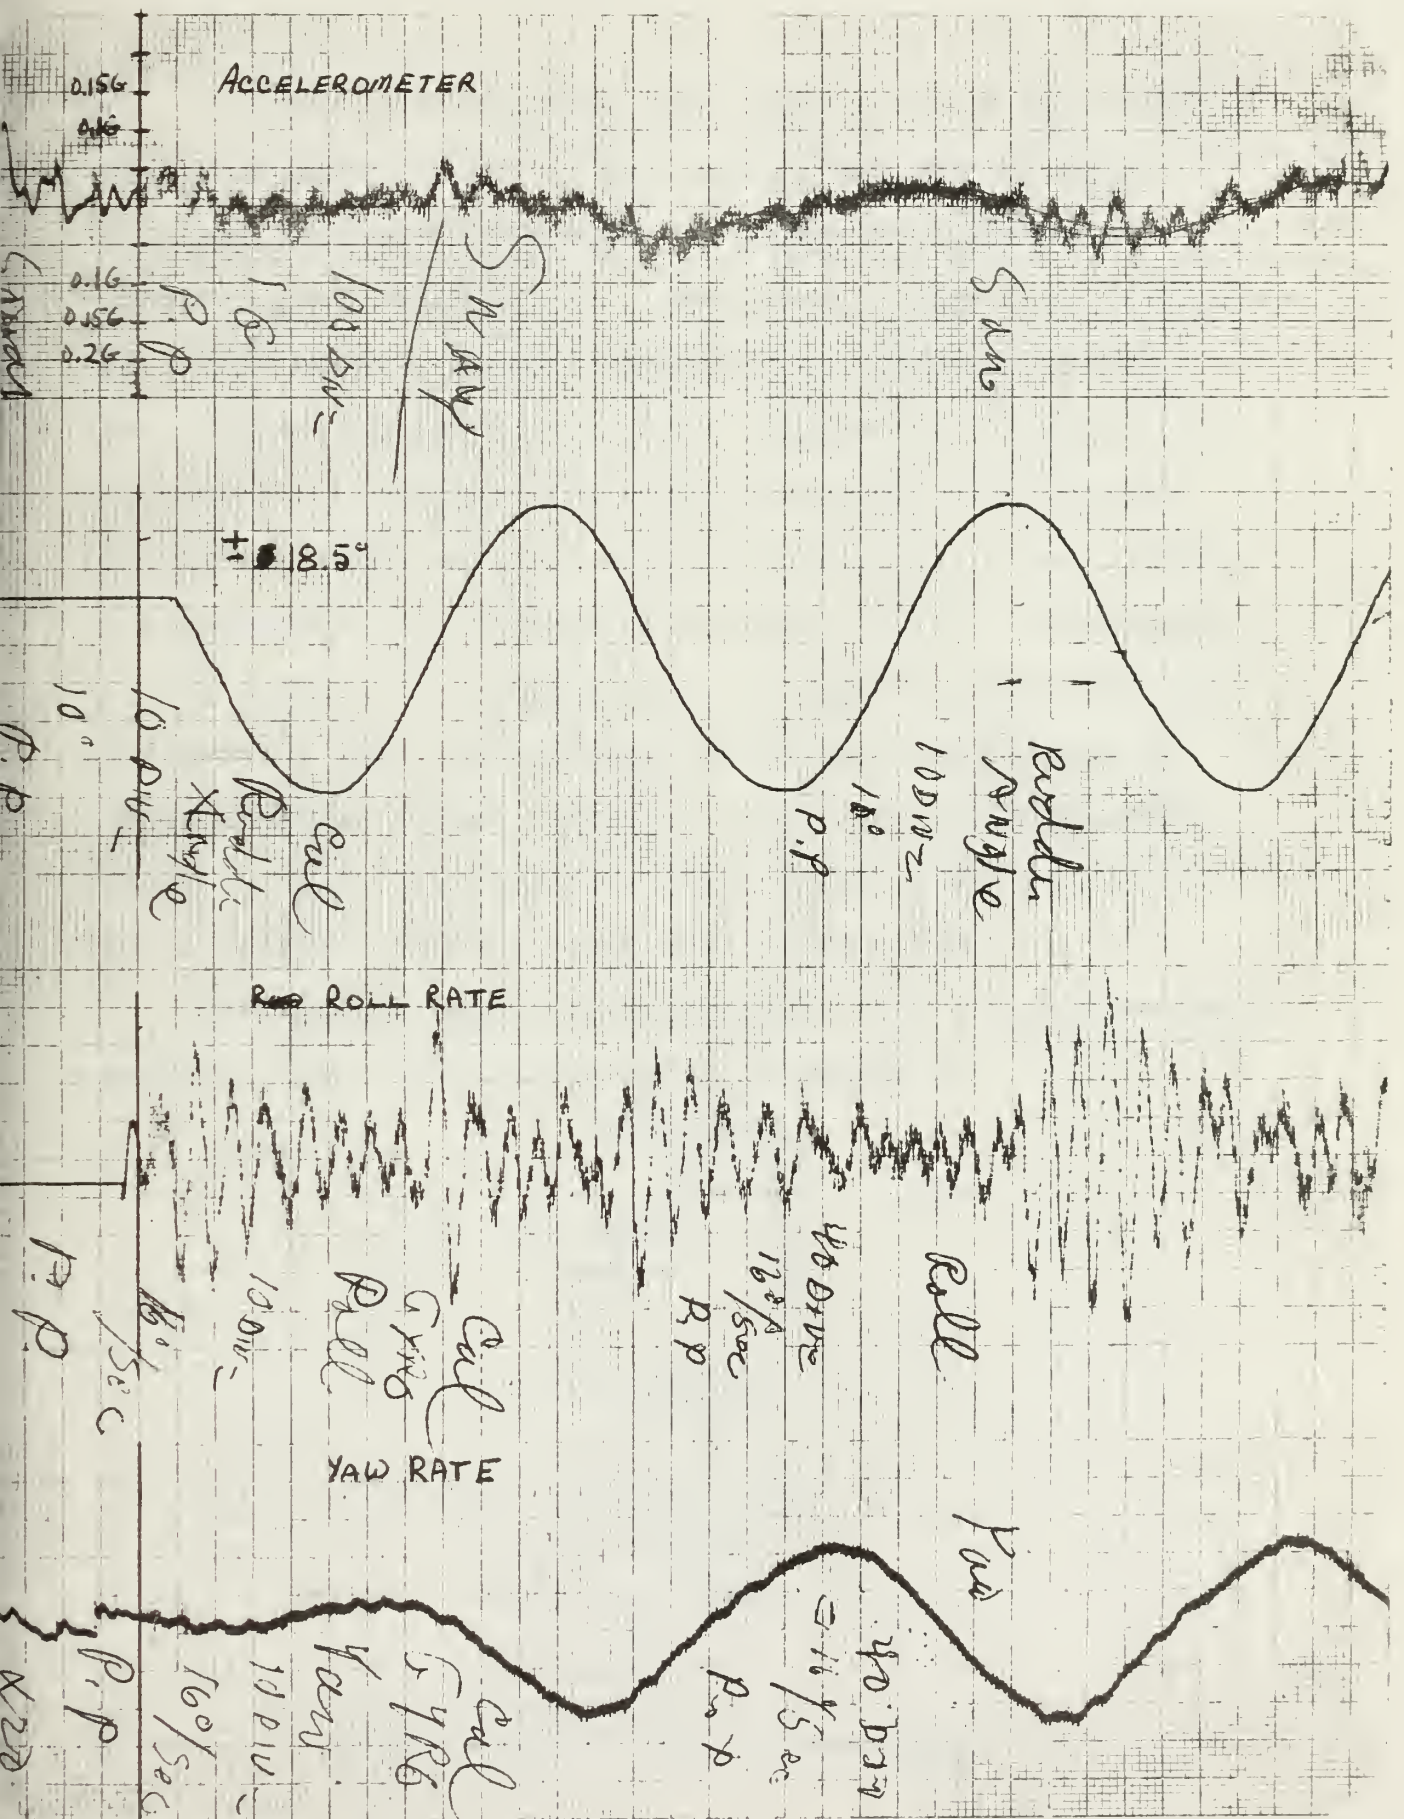 0.15G
0.1G
ACCELEROMETER
0.1G
0.15G
0.2G
SWAY
100 DIV =
1 G
P.P
Swag
± 18.5°
Cal
Rudder
Angle
10 DIV =
10°
P.P
Rudder
Angle
10 DIV =
10°
P.P
ROLL RATE
Cal
Gyro
Roll
10 DIV =
16°
/Sec
P.P
Roll
40 DIV =
16°/
/Sec
P.P
YAW RATE
Cal
GYRO
Yaw
10 DIV =
16°/Sec
P.P
X20
Yaw
40 DIV
= 16°/Sec
P.P